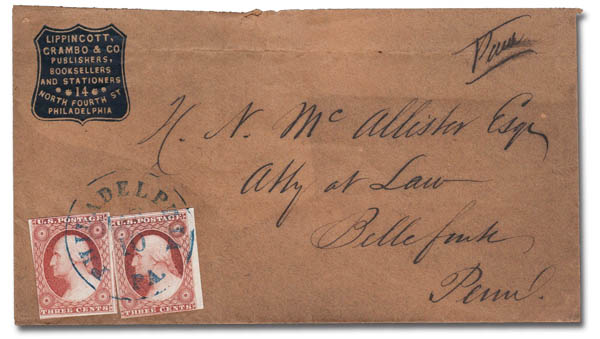 LIPPINCOTT,
GRAMBO & CO.
PUBLISHERS,
BOOKSELLERS
AND STATIONERS
14
NORTH FOURTH ST
PHILADELPHIA
Paid
H. N. McAllister Esqr
Atty at Law
Bellefonte
Penna.
PHILADELPHIA
10
PA.
U.S. POSTAGE
THREE CENTS
U.S. POSTAGE
THREE CENTS